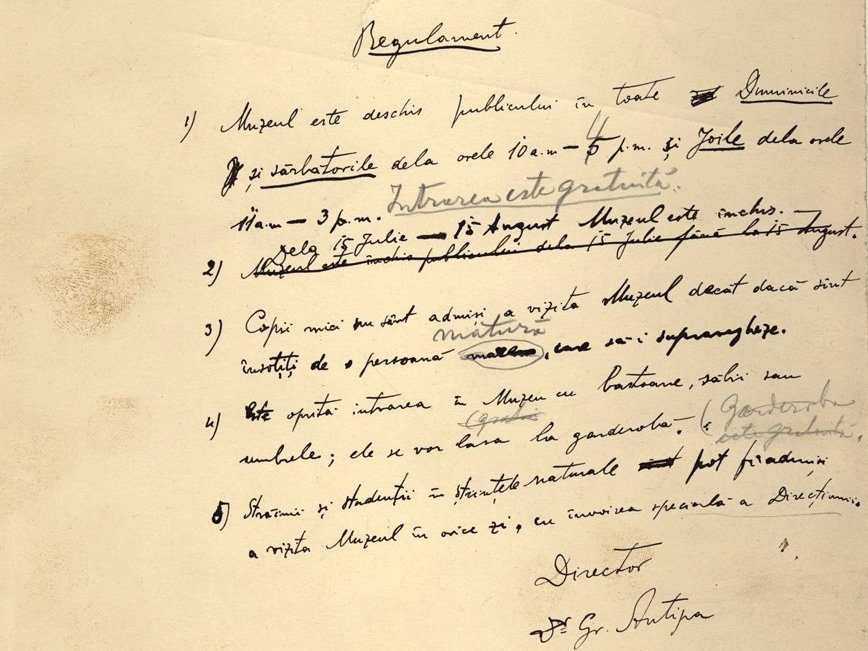 Regulament.
1) Muzeul este deschis publicului în toate Duminicile
și sărbătorile dela orele 10 a.m — 4 p.m. și Joile dela orele
11 a.m — 3 p.m. Intrarea este gratuită.
Dela 15 Iulie — 15 August Muzeul este închis.
2) Muzeul este închis publicului dela 15 Iulie până la 15 August.
3) Copii mici nu sânt admiși a vizita Muzeul decât dacă sînt
matură
însoțiți de o persoană mare, care să-i supravegheze.
4) Este oprită intrarea în Muzeu cu bastoane, săbii sau
(gratis Garderoba
umbrele; ele se vor lăsa la garderobă. (este gratuită.
5) Străinii și studenții în științele naturale pot fi admiși
a vizita Muzeul în orice zi, cu învoirea specială a Direcțiunii.
Director
Dr Gr. Antipa